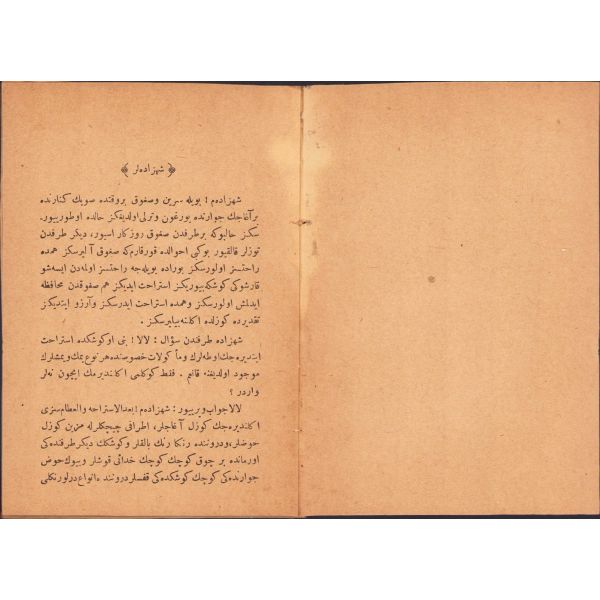 ﴿ شهزاده‌لر ﴾
شهزاده‌م! بویله سرین وصغوق بروقتده صویك كنارنده
برآغاجك جوارنده یورغون وترلی اولدیغكز حالده اوطوریيور-
سكز حالبوكه برطرفدن صغوق روزكار اسیور، دیكر طرفدن
توزلر قالقیور بوكبی احوالده قورقارم‌كه صغوق آلیرسكز همده
راحتسز اولورسكز بوراده بویله‌جه راحتسز اولمه‌دن ایسه‌شو
قارشوكی كوشكه بیوریكز استراحت ایدیكز هم صغوقدن محافظه
ایدلمش اولورسكز وهمده استراحت ایدرسكز وآرزو ایتدیكز
تقدیرده كوزلده اكلنه‌بیلیرسكز .
شهزاده طرفندن سؤال : لالا! بنی اوكوشكده استراحت
ایتدیره‌جك اوطه‌لرك ومأكولات خصوصنده هر نوع یمك ویمشلرك
موجود اولدیغنه قانعم . فقط كوكلمی اكلندیرمك ایچون نه‌لر
واردر ؟
لالاجواب ویریيور : شهزاده‌م! بعدالاستراحه والطعام سزی
اكلندیره‌جك كوزل آغاجلر، اطرافی چیچكلرله مزین كوزل
حوضلر، ودروننده رنكا رنك بالقلر وكوشكك دیكر طرفنده‌كی
اورمانده پر چوق كوچك كوچك خدائی قوشلر وبیوك حوض
جوارنده‌كی كوچك كوشكده‌كی قفسلر دروننده انواع درلورنكلی